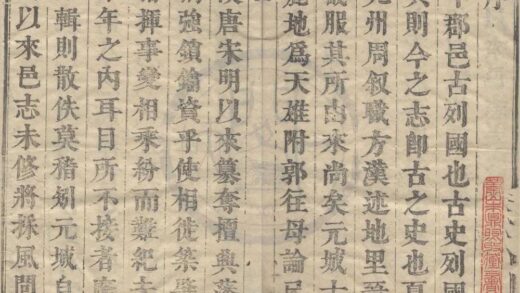 序
郡邑古列國也古史列國
則今之志卽古之史也夏
州周叙職方漢述地里
服其所由來尚矣元城
地爲天雄附郭往毋論已
唐宋明以來纂奪檀興
強鎖鑰資乎使相徙築
揮事變相乘紛而難紀
年之內耳目所不接者
輯則散佚莫稽矧元城自
以來邑志未修將採風